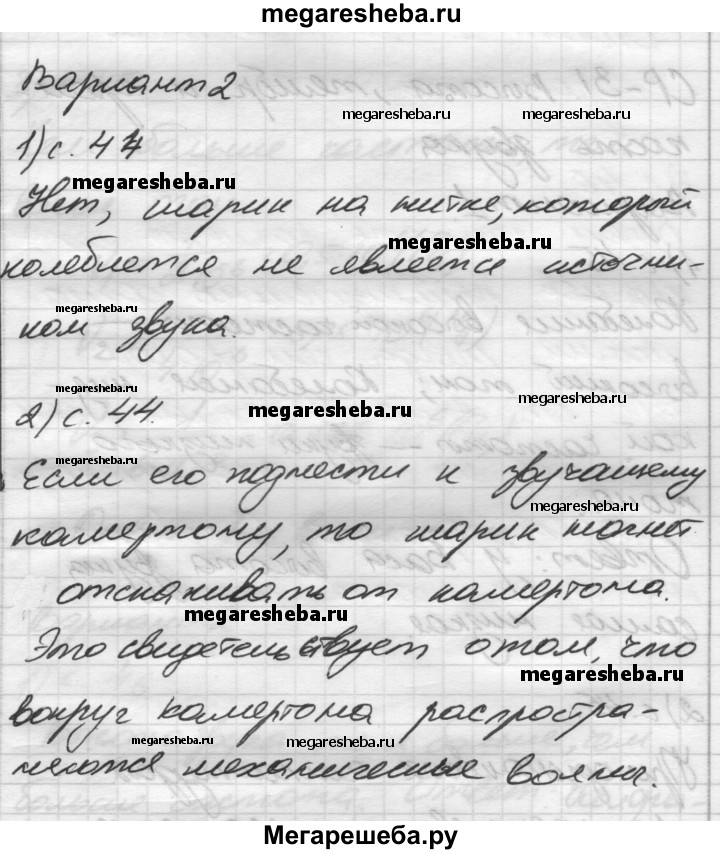 megaresheba.ru
Вариант 2
megaresheba.ru megaresheba.ru
1) с. 44
megaresheba.ru
Нет, шарик на нитке, который
megaresheba.ru
колеблется не является источни-
megaresheba.ru
ком звука.
megaresheba.ru
megaresheba.ru megaresheba.ru
2) с. 44.
megaresheba.ru
Если его поднести к звучащему
megaresheba.ru
камертону, то шарик начнет
отскакивать от камертона.
megaresheba.ru
Это свидетельствует о том, что
megaresheba.ru
вокруг камертона распростра-
megaresheba.ru megaresheba.ru
няются механические волны.
Мегарешеба.ру